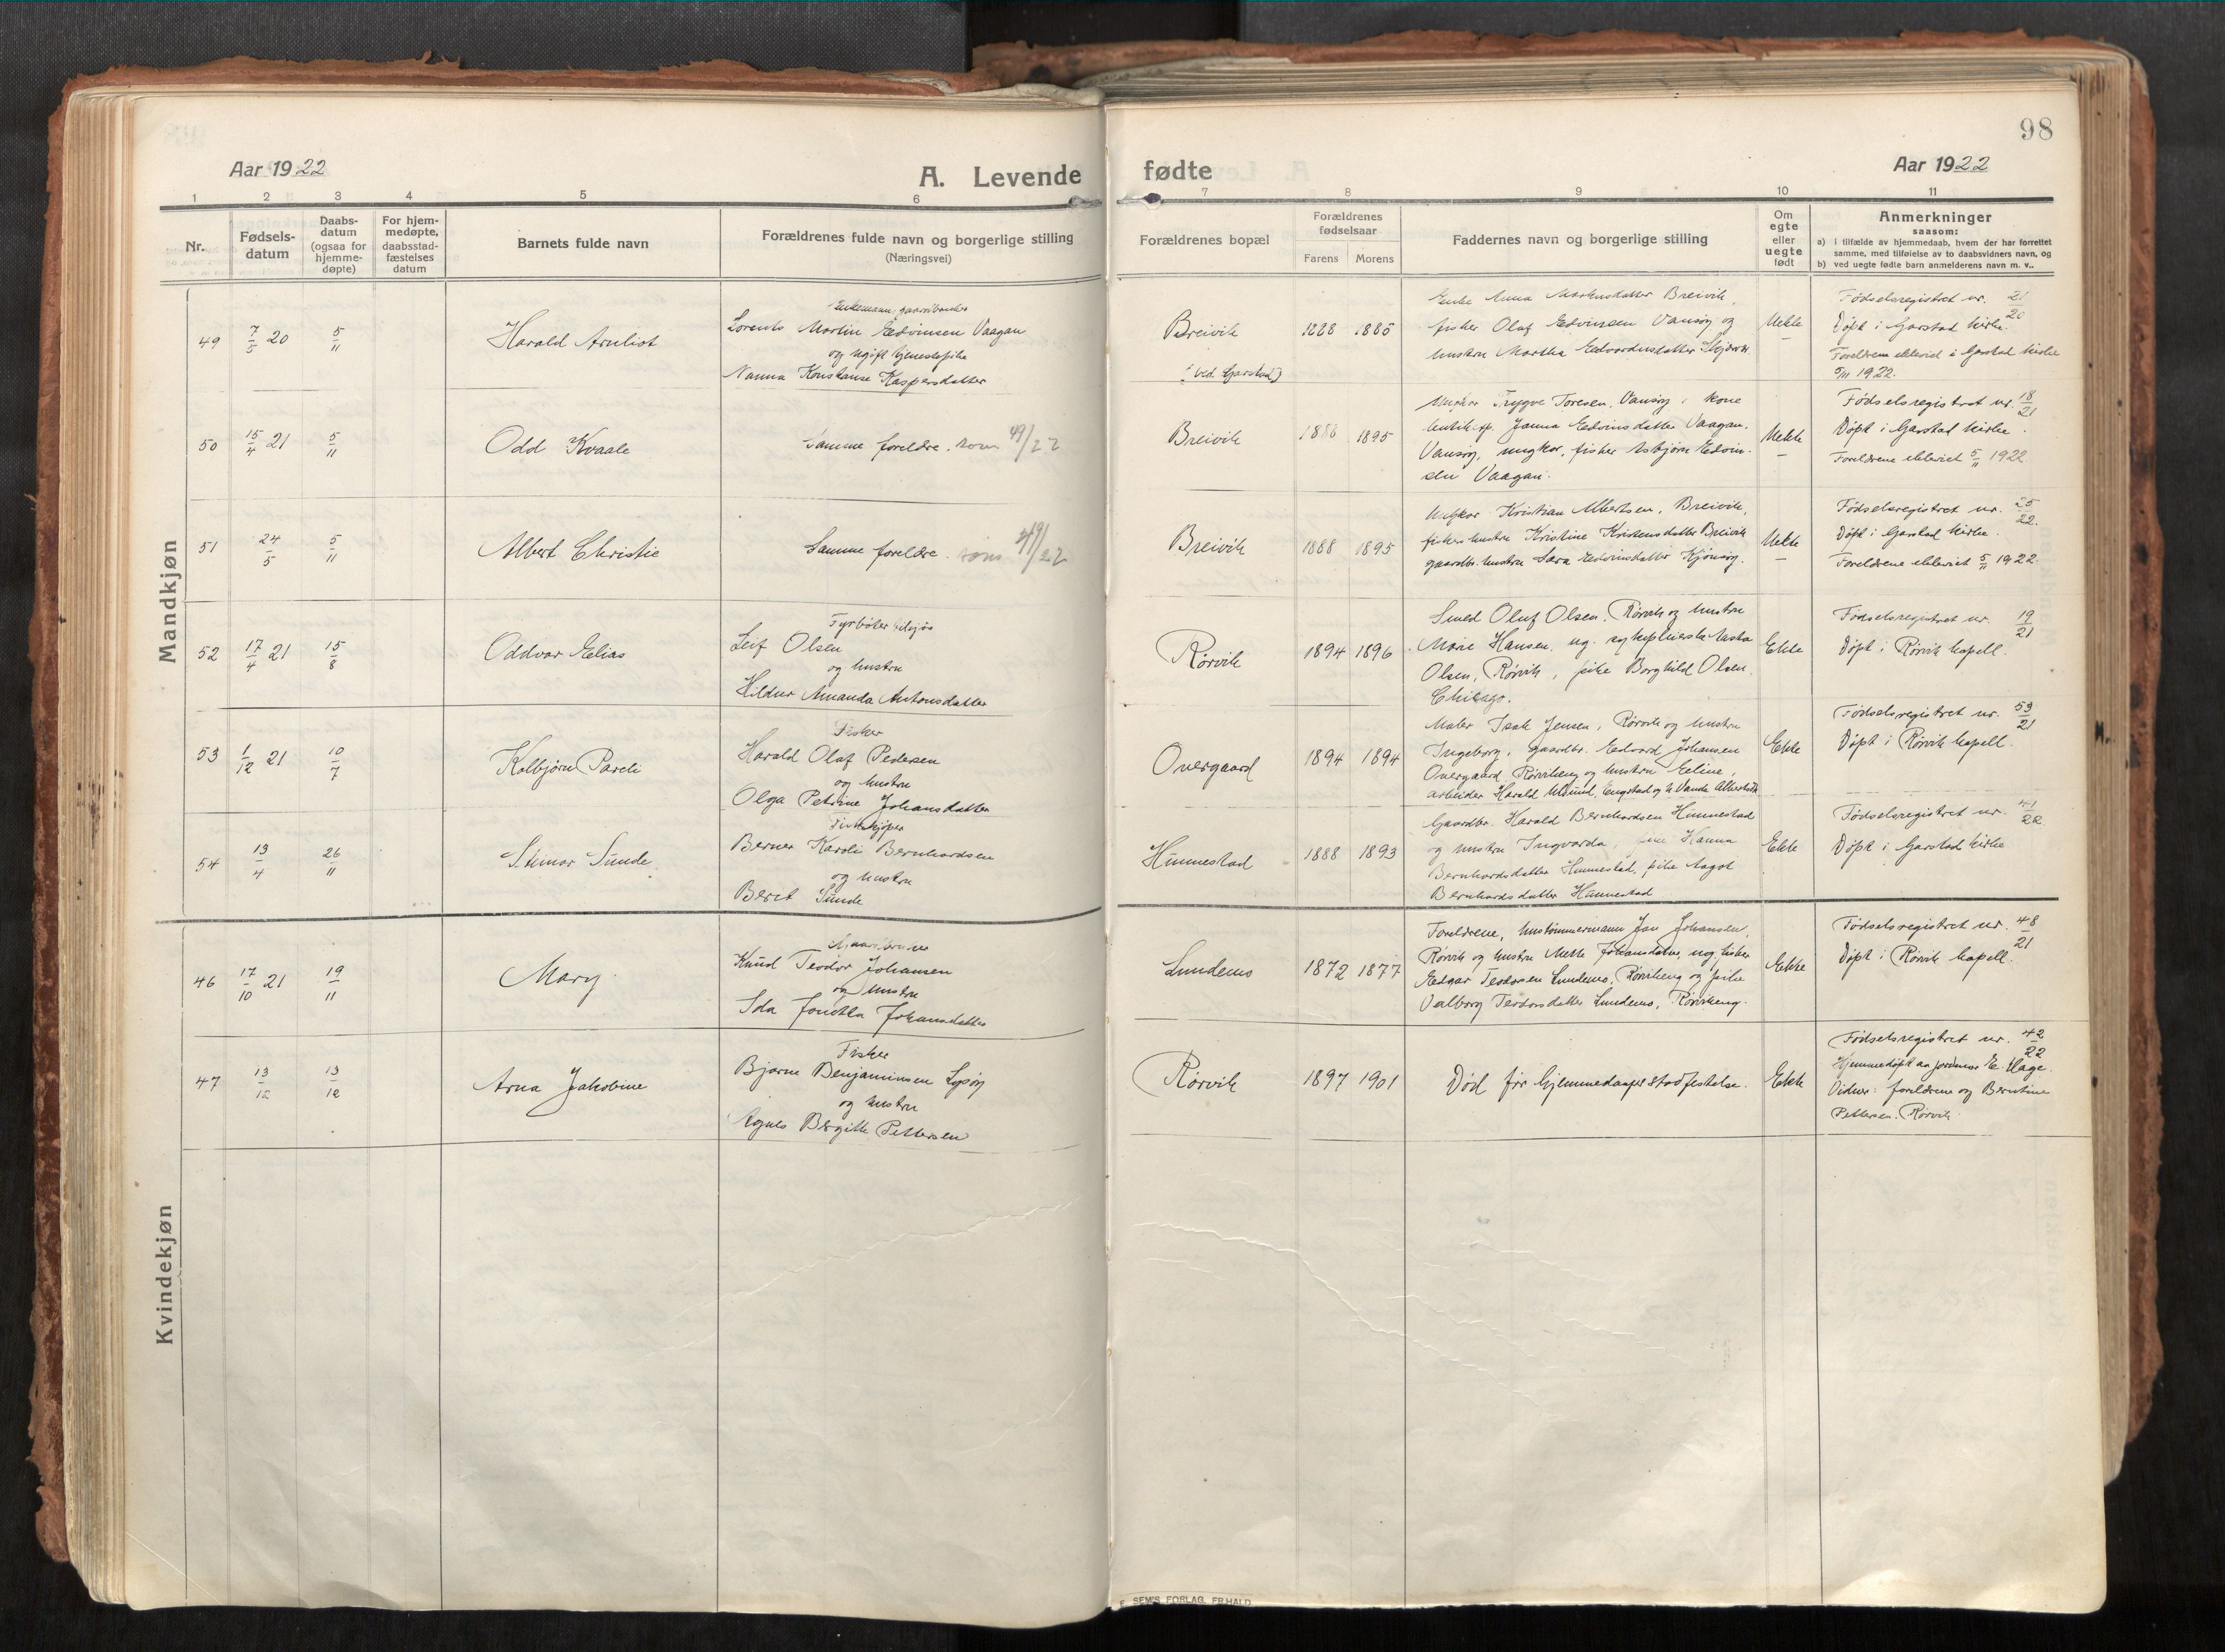 98
Aar 1922
A. Levende fødte
Aar 1922
1 2 3 4 5 6 7 8 9 10 11
Nr.
Fødsels-
datum
Daabs-
datum
(ogsaa for
hjemme-
døpte)
For hjem-
medøpte,
daabsstad-
fæstelses
datum
Barnets fulde navn
Forældrenes fulde navn og borgerlige stilling
(Næringsvei)
Forældrenes bopæl
Forældrenes
fødselsaar
Farens Morens
Faddernes navn og borgerlige stilling
Om
egte
eller
uegte
født
Anmerkninger
saasom:
a) i tilfælde av hjemmedaab, hvem der har forrettet
samme, med tilføielse av to daabsvidners navn, og
b) ved uegte fødte barn anmelderens navn m. v..
Mandkjøn
49 7/5 20 5/11 Harald Arnliot
Enkemann, gaardbruker
Lorents Martin Edvinsen Vaagan
og ugift tjenestepike
Nanna Konstanse Kaspersdatter
Breivik
(ved Garstad)
1888 1885
Enke Anna Breivik,
fisker Olaf Edvinsen Vansøy og
hustru Martha Edvardsdatter
Uekte
Fødselsregistret nr. 21/20
Døpt i Garstad kirke.
Foreldrene ekteviet i Garstad kirke
5/11 1922.
50 15/4 21 5/11 Odd Kvaale
Samme foreldre. som 49/22
Breivik
1888 1895
Ungkar Trygve Toresen, Vansøy, kone
Janna Edvinsdatter Vaagan,
Vansøy, ungkar, fisker Asbjørn Edvin-
sen Vaagan.
Uekte
Fødselsregistret nr. 18/21
Døpt i Garstad kirke.
Foreldrene ekteviet 5/11 1922.
51 24/5 5/11 Albert Christie
Samme foreldre. som 49/22
Breivik
1888 1895
Ungkar Kristian Albertsen, Breivik,
fisker hustru Kristine Kristensdatter Breivik
gaardbr. hustru Sara Edvinsdatter
Uekte
Fødselsregistret nr. 25/22.
Døpt i Garstad kirke.
Foreldrene ekteviet 5/11 1922.
52 17/4 21 15/8 Oddvar Elias
Fyrbøter tilsjøs
Leif Olsen
og hustru
Hildur Amanda Antonsdatter
Rørvik
1894 1896
Smed Oluf Olsen, Rørvik og hustru
Marie Hansen, ug. sykepleierske Aasta
Olsen, Rørvik, pike Borghild Olsen,
Chicago.
Ekte
Fødselsregistret nr. 19/21
Døpt i Rørvik kapell.
53 1/12 21 10/7 Kolbjørn Pareli
Fisker
Harald Olaf Pedersen
og hustru
Olga Petrine Johansdatter
Overgaard
1894 1894
Maler Isak Jensen, Rørvik og hustru
Ingeborg, gaardbr. Edvard Johansen
Overgaard, Rørvikeng og hustru Eline,
arbeider Harald Engstad og h. Vanda
Ekte
Fødselsregistret nr. 53/21
Døpt i Rørvik kapell.
54 13/4 26/11 Steinar Sunde
Fiskekjøper
Berner Karoli Bernhardsen
og hustru
Beret Sunde
Hunnestad
1888 1893
Gaardbr. Harald Bernhardsen Hunnestad
og hustru Ingvarda, pike Hanna
Bernhardsdatter Hunnestad, pike Aagot
Bernhardsdatter Hunnestad
Ekte
Fødselsregistret nr. 41/22
Døpt i Garstad kirke
Kvindekjøn
46 17/10 21 19/11 Mary
Gaardbruker
Knud Teodor Johansen
og hustru
Ida Johansdatter
Lundemo
1872 1877
Foreldrene, hustømmermann Jon Johansen,
Rørvik og hustru Mette Johansdatter, ung. fisker
Edgar Teodorsen Lundemo, Rørvikeng og pike
Valborg Teodorsdatter Lundemo, Rørvikeng.
Ekte
Fødselsregistret nr. 48/21
Døpt i Rørvik kapell.
47 13/12 13/12 Arna Jakobine
Fisker
Bjarne Benjaminsen Lysøy
og hustru
Agnes Birgitte Pettersen
Rørvik
1897 1901
Død før hjemmedaapens stadfestelse.
Ekte
Fødselsregistret nr. 42/22
Hjemmedøpt av jordmor E. Hage.
Vidner: foreldrene og Berntine
Pettersen. Rørvik
SEM'S FORLAG, FR.HALD